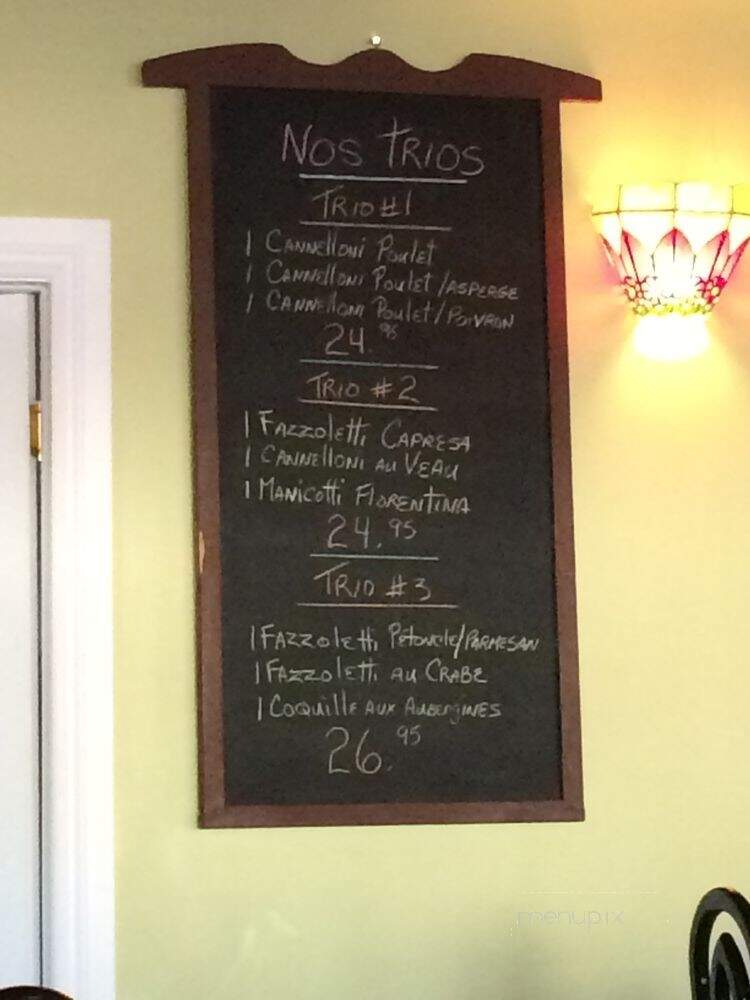 Nos Trios
Trio #1
1 Cannelloni Poulet
1 Cannelloni Poulet/Asperge
1 Cannelloni Poulet/Poivron
24.95
Trio #2
1 Fazzoletti Capresa
1 Cannelloni au Veau
1 Manicotti Florentina
24.95
Trio #3
1 Fazzoletti Pétoncle/Parmesan
1 Fazzoletti au Crabe
1 Coquille aux Aubergines
26.95
menupix